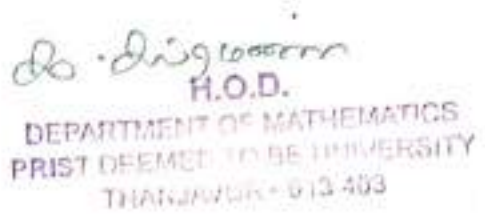 H.O.D.
DEPARTMENT OF MATHEMATICS
PRIST DEEMED TO BE UNIVERSITY
THANJAVUR - 613 403